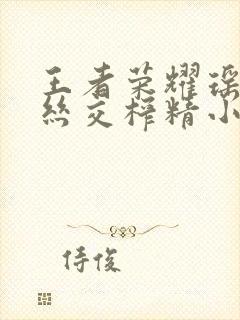 王者荣耀瑶
丝交榨精小
侍俊